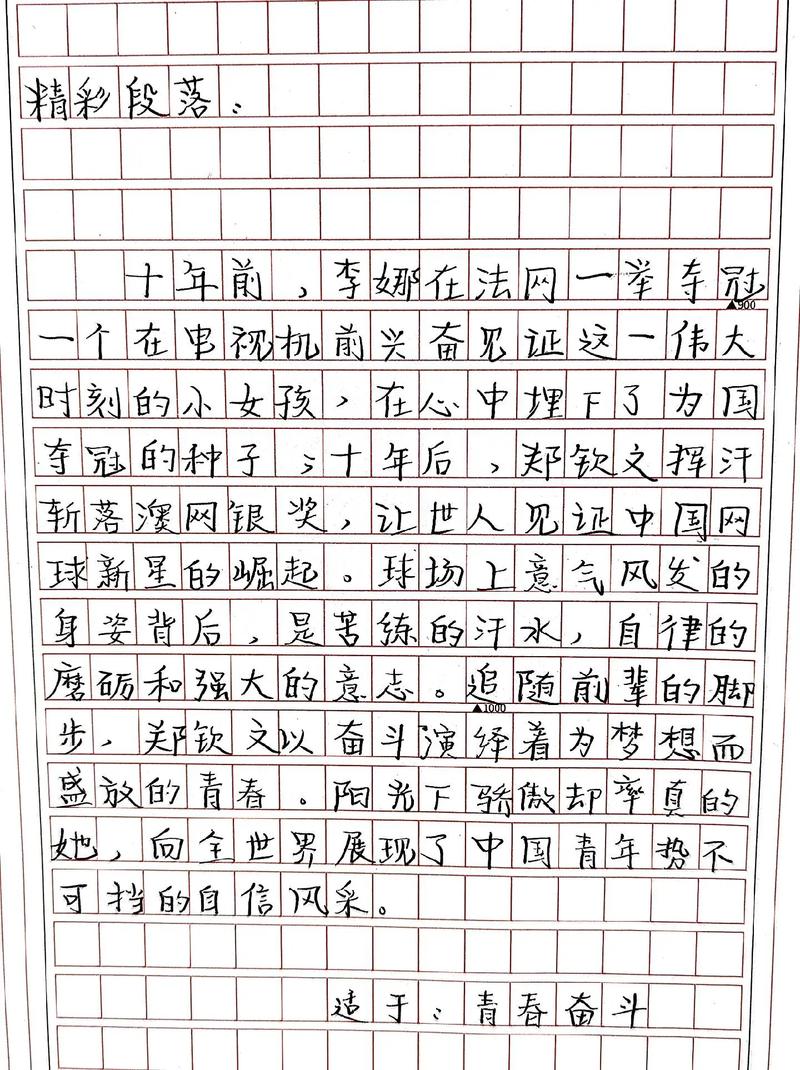 精彩段落：
十年前，李娜在法网一举夺冠
▲900
一个在电视机前兴奋见证这一伟大
时刻的小女孩，在心中埋下了为国
夺冠的种子；十年后，郑钦文挥汗
斩落澳网银奖，让世人见证中国网
球新星的崛起。球场上意气风发的
身姿背后，是苦练的汗水，自律的
磨砺和强大的意志。追随前辈的脚
▲1000
步，郑钦文以奋斗演绎着为梦想而
盛放的青春。阳光下骄傲却率真的
她，向全世界展现了中国青年势不
可挡的自信风采。
适于：青春奋斗